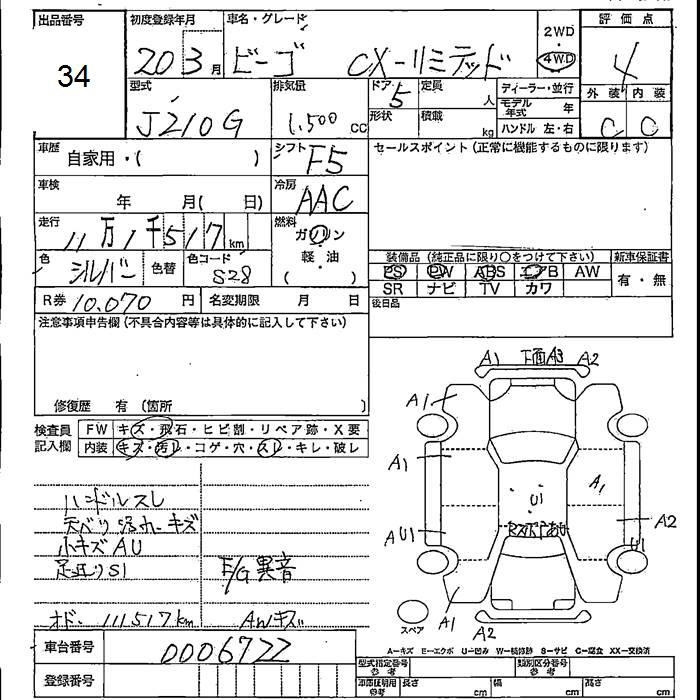 出品番号
34
初度登録年月
20 3月
車名・グレード
ビーゴ CX-リミテッド
2WD
4WD
評価点
4
外装 内装
C C
型式
J210G
排気量
1,500 cc
ドア 5
定員 人
形状
積載 kg
ディーラー・並行
モデル年式 年
ハンドル 左・右
車歴
自家用・( )
シフト F5
セールスポイント (正常に機能するものに限ります)
車検
年 月( 日)
冷房
AAC
走行
11万1千517km
燃料
ガソリン
軽・油
( )
色
シルバー
色替
色コード
S28
装備品 (純正品に限り○をつけて下さい)
新車保証書
PS PW ABS エアB AW
有・無
SR ナビ TV カワ
R券 10,070 円
名変期限 月 日
後日品
注意事項申告欄 (不具合内容等は具体的に記入して下さい)
修復歴 有 (箇所 )
検査員
記入欄
FW キズ・飛石・ヒビ割・リペア跡・X要
内装 キズ・汚レ・コゲ・穴・スレ・キレ・破レ
ハンドルスレ
天ベリ キズ
小キズ AU
S1
E/G異音
オド. 111517km
AWキズ
A1 下面A3 A2
A1
A1
A1
U1
AU1
A2
U1
A1
A2
スペア
車台番号
0006722
登録番号
A-キズ E-エクボ U-凹み W-補修跡 S-サビ C-腐食 XX-交換済
型式指定番号
参考
類別区分番号
参考
車庫証明用
参考
長さ cm
幅 cm
高さ cm